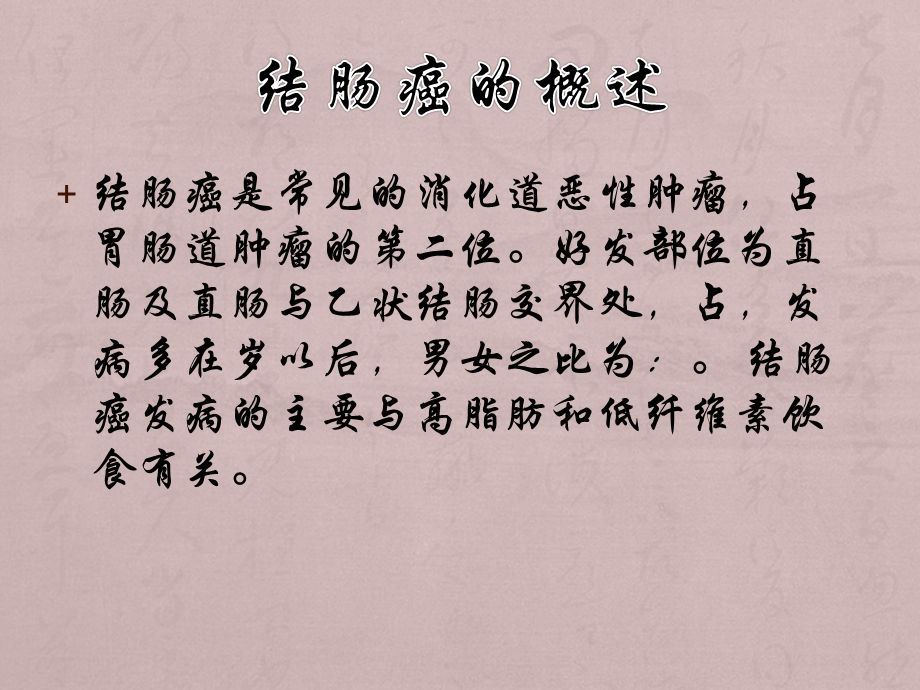 结肠癌的概述
+ 结肠癌是常见的消化道恶性肿瘤，占
胃肠道肿瘤的第二位。好发部位为直
肠及直肠与乙状结肠交界处，占，发
病多在岁以后，男女之比为：。结肠
癌发病的主要与高脂肪和低纤维素饮
食有关。